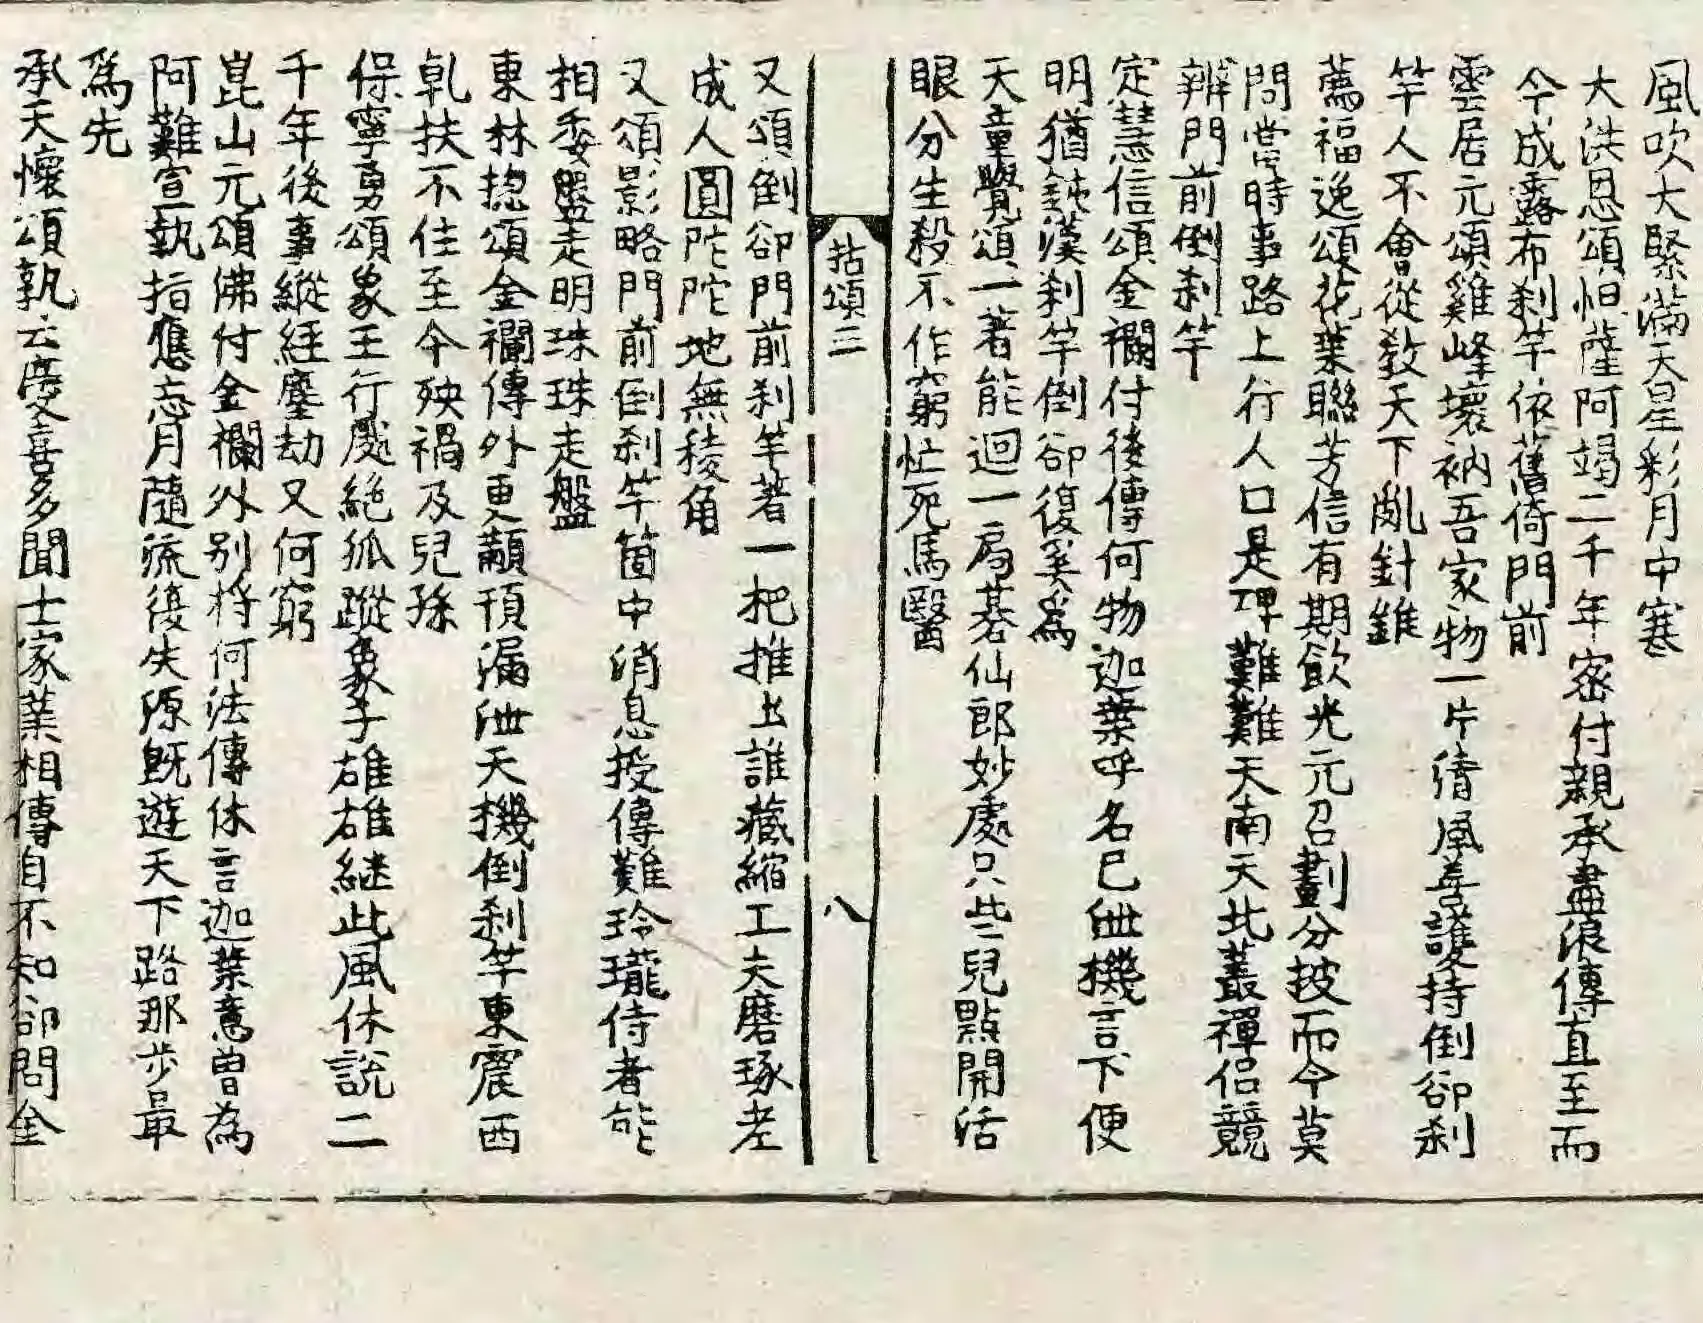 風吹大緊滿天星彩月中寒
大洪恩頌怛薩阿竭二千年密付親承盡浪傳直至而
今成露布刹竿依舊倚門前
雲居元頌雞峰壞衲吾家物一片清風善護持倒卻刹
竿人不會從教天下亂針錐
薦福逸頌花葉聯芳信有期飲光元召劃分披而今莫
問當時事路上行人口是碑難難天南天北叢禪侣競
辨門前倒刹竿
定慧信頌金襴付後傳何物迦葉呼名已泄機言下便
明猶鈍漢刹竿倒卻復奚爲
天童覺頌一著能迴一局碁仙郎妙處只些兒點開活
眼分生殺不作窮忙死馬醫
拈頌三
八
又頌倒卻門前刹竿著一把推上誰藏縮工夫磨琢老
成人圓陀陀地無稜角
又頌影略門前倒刹竿箇中消息授傳難玲瓏侍者能
相委盤走明珠珠走盤
東林揔頌金襴傳外更顢頇漏泄天機倒刹竿東震西
乹扶不住至今殃禍及兒孫
保寧勇頌象王行處絶狐蹤象子雄雄継此風休説二
千年後事縱經塵劫又何窮
崑山元頌佛付金襴外别將何法傳休言迦葉意曽為
阿難宣執指應忘月隨流復失源旣遊天下路那步最
爲先
承天懷頌孰云慶喜多聞士家業相傳自不知卻問金